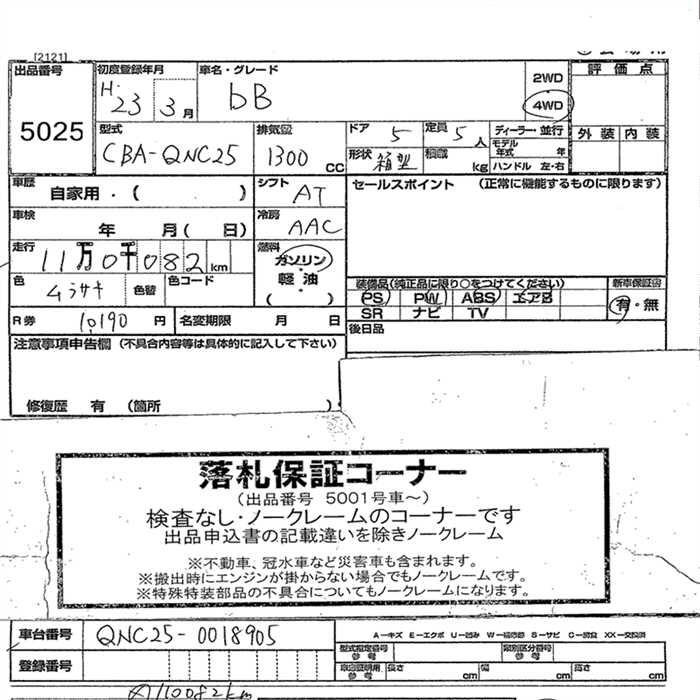 [2121]
出品番号 初度登録年月 車名・グレード 2WD 評価点
H.23 3月 bB 4WD
5025 外装 内装
型式 排気量 ドア 5 定員 5人 ディーラー・並行
モデル年式 年
CBA-QNC25 1300CC 形状 箱型 積載 kg ハンドル 左・右
車歴 自家用・( ) シフト AT セールスポイント (正常に機能するものに限ります)
車検 年 月( 日) 冷房 AAC
走行 11万0千082km 燃料 ガソリン 軽油 ( )
装備品(純正品に限り○をつけてください) 新車保証書
色 ムラサキ 色替 色コード PS PW ABS エアB 有・無
R券 10,190円 名変期限 月 日 SR ナビ TV
後日品
注意事項申告欄 (不具合内容等は具体的に記入して下さい)
修復歴 有 (箇所 )
落札保証コーナー
(出品番号 5001号車~)
検査なし・ノークレームのコーナーです
出品申込書の記載違いを除きノークレーム
※不動車、冠水車など災害車も含まれます。
※搬出時にエンジンが掛からない場合でもノークレームです。
※特殊特装部品の不具合についてもノークレームになります。
車台番号 QNC25-0018905 A-キズ E-エクボ U-凹み W-補修跡 S-サビ C-腐食 XX-交換済
型式指定番号 参考 類別区分番号 参考
登録番号 車庫証明用 参考 長さ cm 幅 cm 高さ cm
110082km